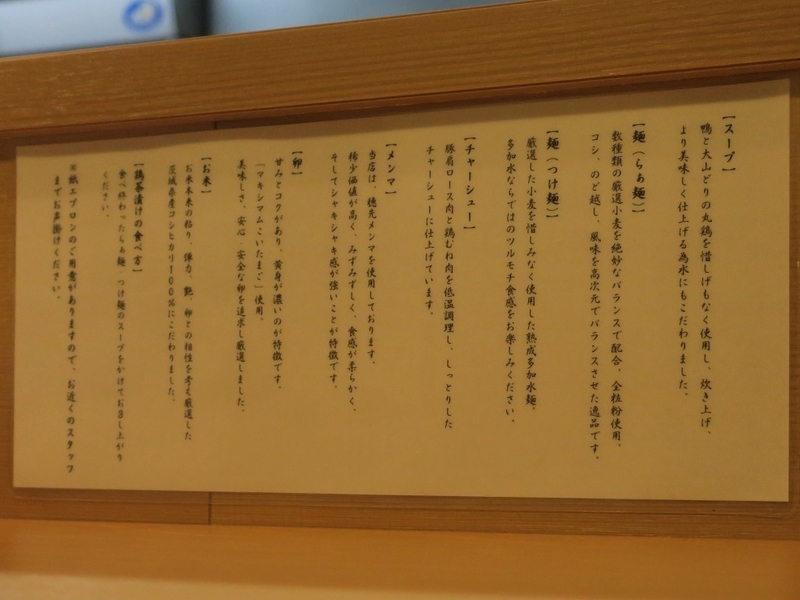 【スープ】
鴨と大山どりの丸鶏を惜しげもなく使用し、炊き上げ、
より美味しく仕上げる為水にもこだわりました。
【麺（らぁ麺）】
数種類の厳選小麦を絶妙なバランスで配合、全粒粉使用、
コシ、のど越し、風味を高次元でバランスさせた逸品です。
【麺（つけ麺）】
厳選した小麦を惜しみなく使用した熟成多加水麺、
多加水ならではのツルモチ食感をお楽しみください。
【チャーシュー】
豚肩ロース肉と鶏むね肉を低温調理し、しっとりした
チャーシューに仕上げています。
【メンマ】
当店は、穂先メンマを使用しております。
稀少価値が高く、みずみずしく、食感が柔らかく、
そしてシャキシャキ感が強いことが特徴です。
【卵】
甘みとコクがあり、黄身が濃いのが特徴です。
「マキシマムこいたまご」使用、
美味しさ、安心・安全な卵を追求し厳選しました。
【お米】
お米本来の粘り、弾力、艶、卵との相性を考え厳選した
茨城県産コシヒカリ100%にこだわりました。
【鶏茶漬けの食べ方】
食べ終わったらぁ麺、つけ麺のスープをかけてお召し上がり
ください。
※紙エプロンのご用意がありますので、お近くのスタッフ
までお声掛けください。